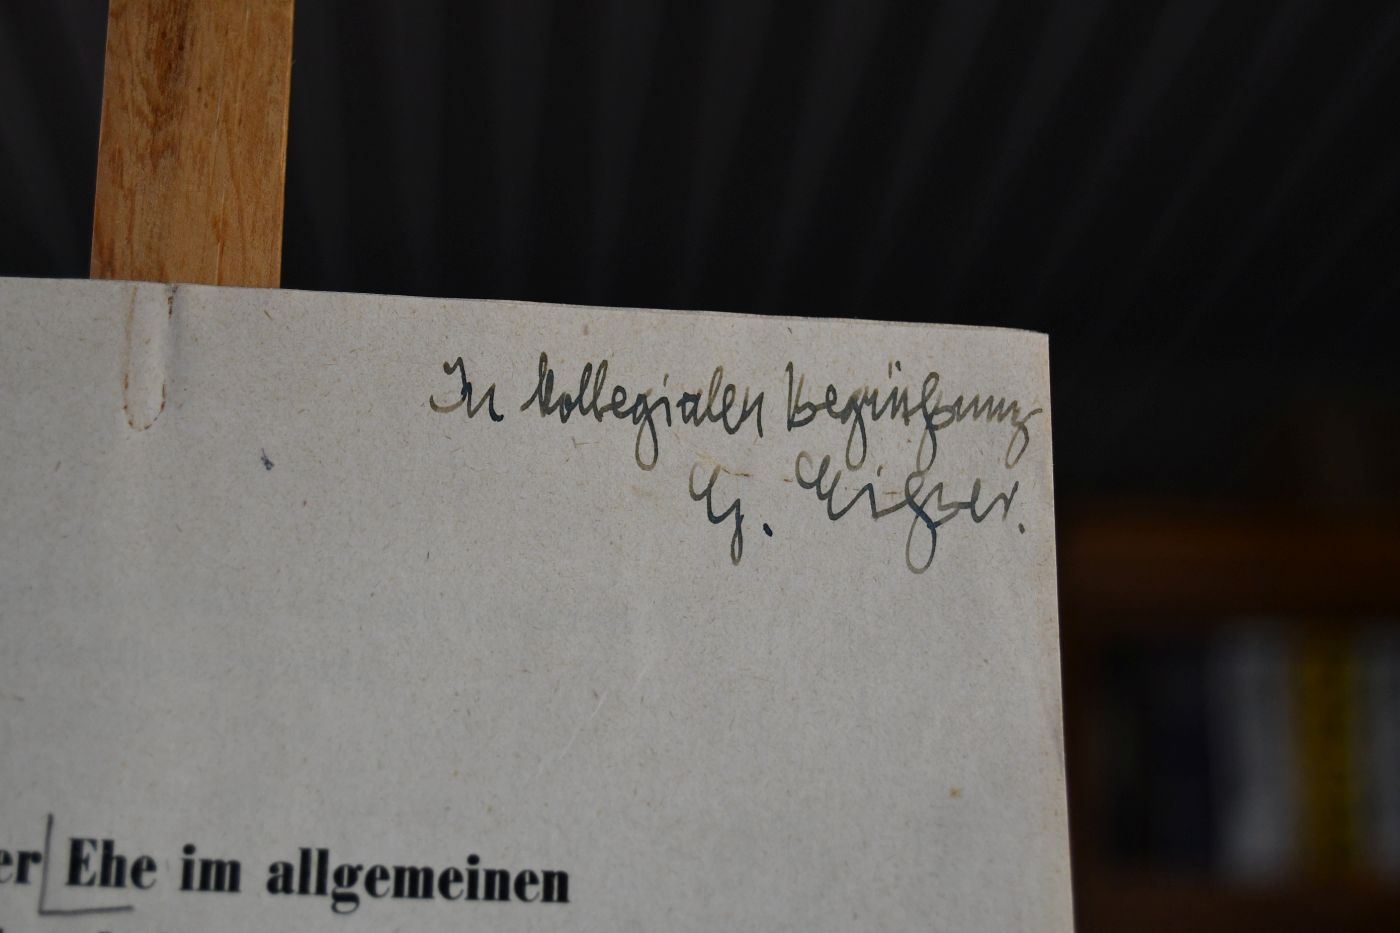 In kollegialer Begrüßung
G. Eigner.
er Ehe im allgemeinen